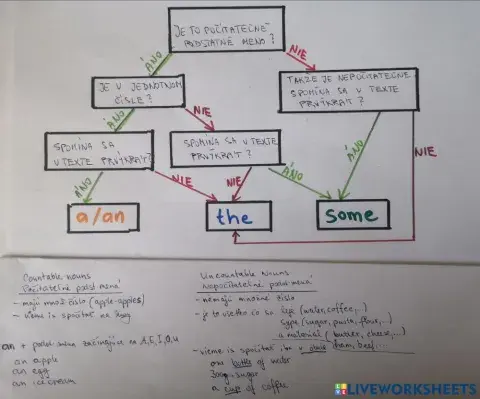 JE TO POČÍTATEĽNÉ
PODSTATNÉ MENO?
ÁNO
NIE
JE V JEDNOTNOM
ČÍSLE?
TAKŽE JE NEPOČÍTATEĽNÉ.
SPOMÍNA SA V TEXTE
PRVÝKRÁT?
ÁNO
NIE
SPOMÍNA SA
V TEXTE PRVÝKRÁT?
SPOMÍNA SA V TEXTE
PRVÝKRÁT?
ÁNO
NIE
NIE
ÁNO
ÁNO
NIE
a/an
the
some
Countable nouns
Počítateľné podst. mená
- majú množ. číslo (apple-apples)
- vieme ich spočítať na
an + podst. mená začínajúce na A, E, I, O, U
an apple
an egg
an ice cream
Uncountable Nouns
Nepočítateľné podst. mená
- nemajú množné číslo
- je to všetko čo sa leje (water, coffee, ...)
sype (sugar, pasta, flour, ...)
a materiál (butter, cheese, ...)
- vieme ich spočítať iba v
one bottle of water
300g sugar
a cup of coffee
LIVEWORKSHEETS